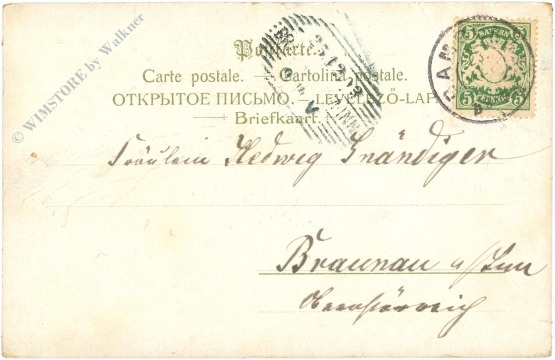 Postkarte.
Carte postale. — Cartolina postale.
ОТКРЫТОЕ ПИСЬМО. — LEVELEZŐ-LAP
Briefkaart.
BAYERN
5 5
PFENNIG
25 12 02
Fräulein Hedwig Gnändiger
Braunau a/Inn
Oberösterreich
© WIMSTORE by Walkner